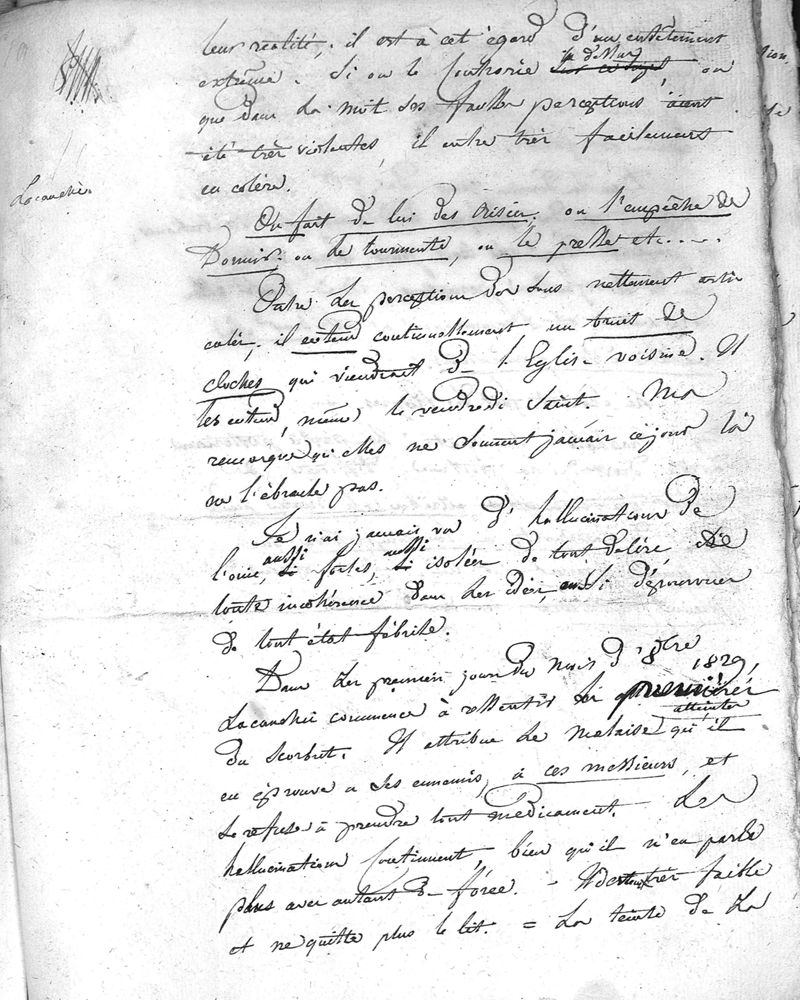 leur réalité, il est à cet égard d'un entêtement
extrême. Si on le contrarie là dessus, ou
que dans la nuit ses fausses perceptions aient
été très violentes, il entre très facilement
en colère.
Lacanchie.
On fait de lui des risées. on l'empêche de
Dormir. on le tourmente, on le presse etc....
Outre les perceptions de sons nettement arti
culés, il entend continuellement un bruit de
cloches qui viendrait de l'Eglise voisine. Il
les entend, même le vendredi saint. Ma
remarque qu'elles ne sonnent jamais ce jour là
ne l'ébranle pas.
Je n'ai jamais vu d'hallucinations de
l'ouie, aussi fortes, aussi isolées de tout délire, de
toute incohérence dans les idées, aussi dépourvues
de tout état fébrile.
Dans les premiers jours du mois d'8bre 1829,
Lacanchie commence à ressentir les premières
atteintes
du scorbut. Il attribue le malaise qu'il
en éprouve a ses ennemis, à ces messieurs, et
se refuse à prendre tout médicament. Les
hallucinations continuent, bien qu'il n'en parle
plus avec autant de force. - Il est très faible
et ne quitte plus le lit. = La teinte de la